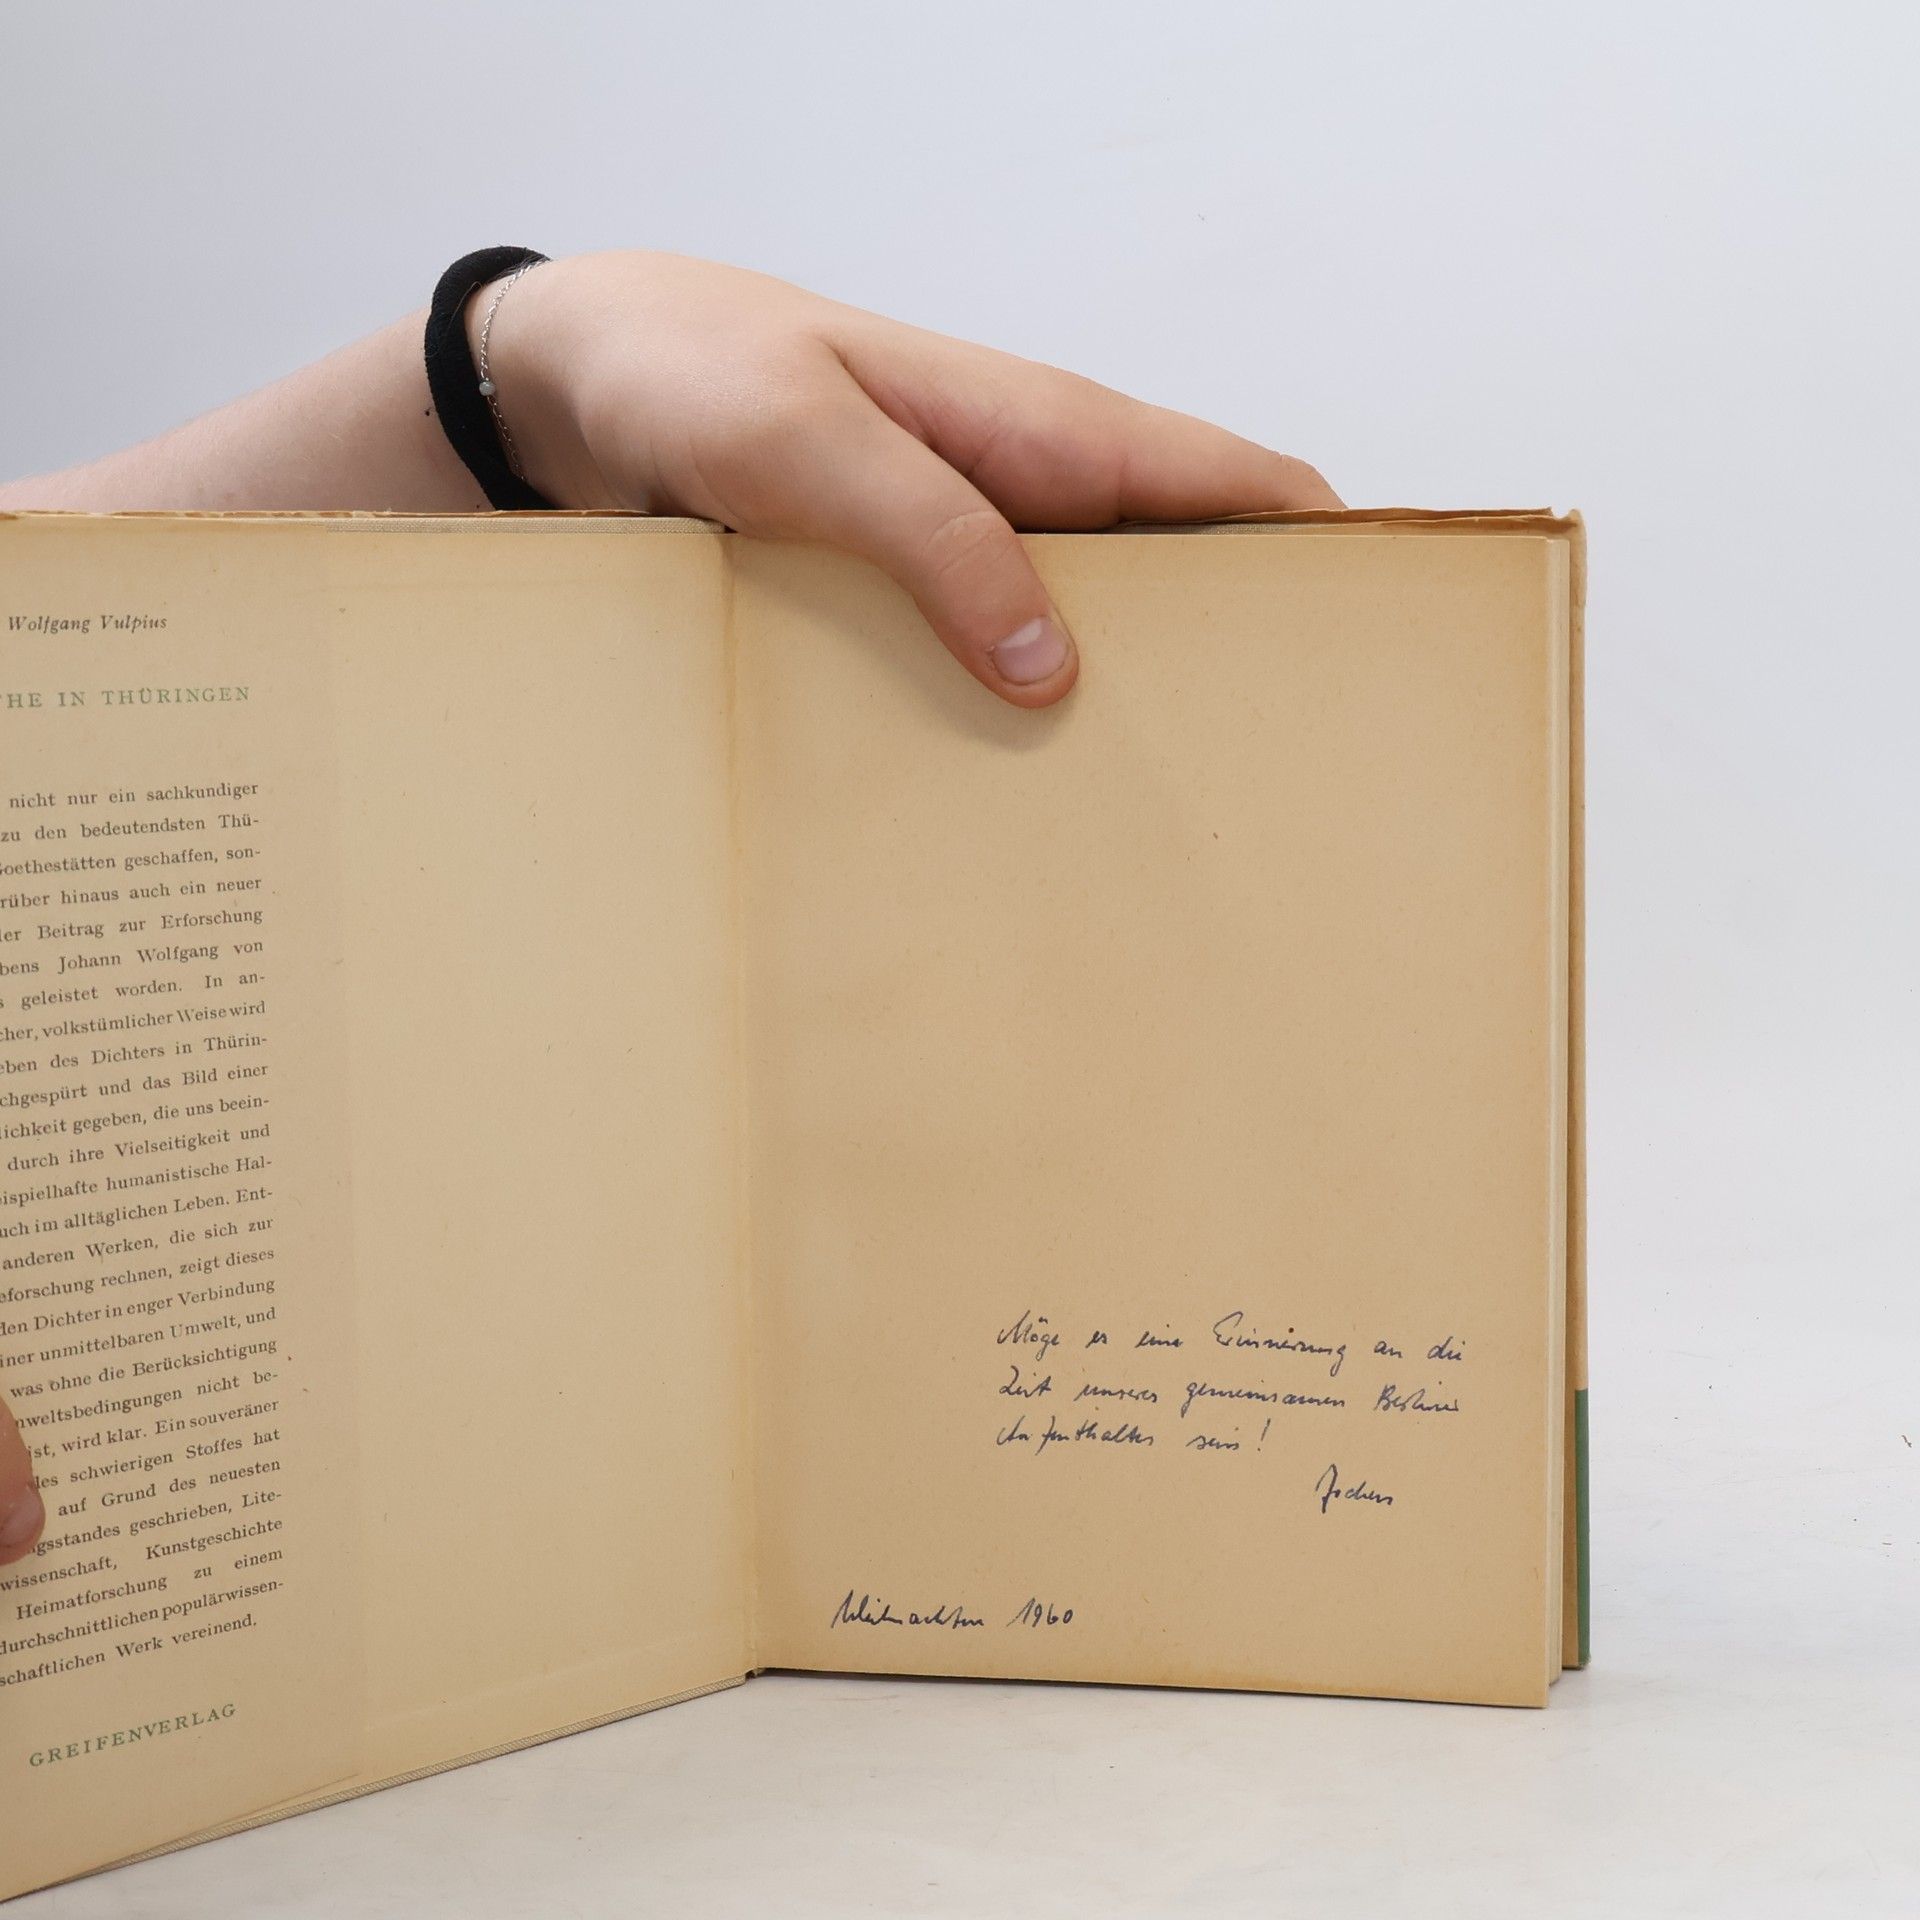 Wolfgang Vulpius
THE IN THÜRINGEN
nicht nur ein sachkundiger
zu den bedeutendsten Thü-
Goethestätten geschaffen, son-
rüber hinaus auch ein neuer
ler Beitrag zur Erforschung
bens Johann Wolfgang von
s geleistet worden. In an-
cher, volkstümlicher Weise wird
eben des Dichters in Thürin-
chgespürt und das Bild einer
lichkeit gegeben, die uns beein-
durch ihre Vielseitigkeit und
eispielhafte humanistische Hal-
uch im alltäglichen Leben. Ent-
anderen Werken, die sich zur
eforschung rechnen, zeigt dieses
den Dichter in enger Verbindung
iner unmittelbaren Umwelt, und
was ohne die Berücksichtigung
nweltsbedingungen nicht be-
ist, wird klar. Ein souveräner
des schwierigen Stoffes hat
auf Grund des neuesten
ngsstandes geschrieben, Lite-
wissenschaft, Kunstgeschichte
Heimatforschung zu einem
durchschnittlichen populärwissen-
schaftlichen Werk vereinend.
GREIFENVERLAG
Möge es eine Erinnerung an die
Zeit unseres gemeinsamen Berliner
Aufenthaltes sein!
Jochen
Weihnachten 1960